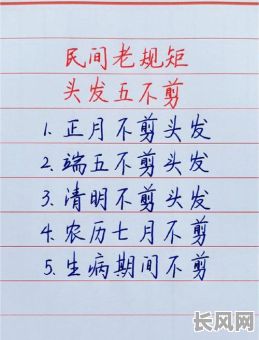 民间老规矩
头发五不剪
1. 正月不剪头发
2. 端五不剪头发
3. 清明不剪头发
4. 农历七月不剪
5. 生病期间不剪
长风网